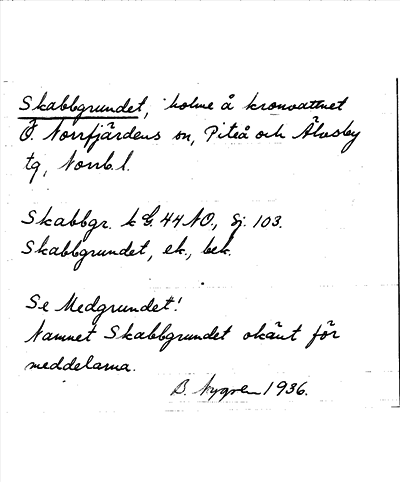 Skabbgrundet, holme å kronvattnet
Ö. Norrfjärdens sn, Piteå och Älvsby
tg, Norrb. l.
Skabbgr. k G. 44 NO., Sj. 103.
Skabbgrundet, ek., bek.
Se Medgrundet!
Namnet Skabbgrundet okänt för
meddelarna.
B. Nygren 1936.